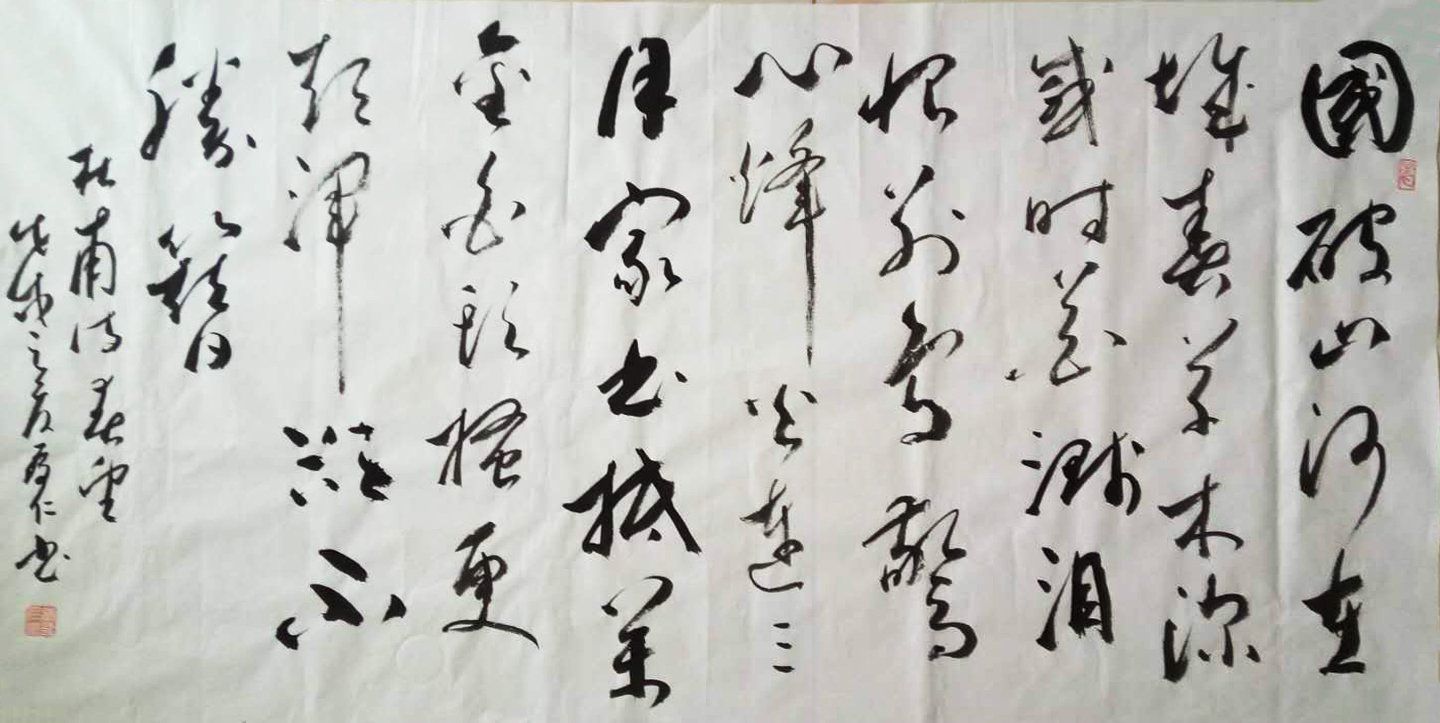 國破山河在
城春草木深
感时花濺泪
恨别鸟驚
心烽火连三
月家书抵萬
金白头搔更
短渾欲不
勝簪
杜甫诗春望
戊戌之夏仁书